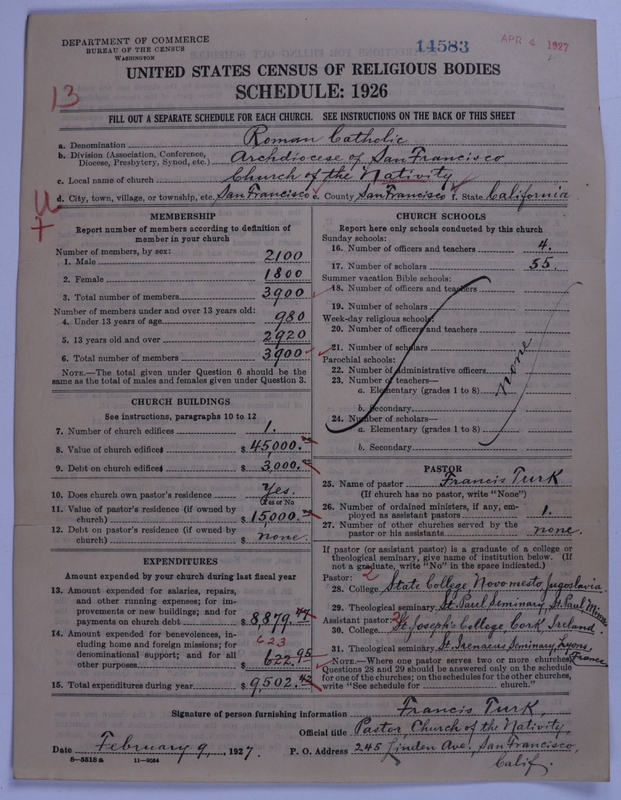 DEPARTMENT OF COMMERCE
BUREAU OF THE CENSUS
WASHINGTON
14583
APR 4 1927
13
UNITED STATES CENSUS OF RELIGIOUS BODIES
SCHEDULE: 1926
FILL OUT A SEPARATE SCHEDULE FOR EACH CHURCH. SEE INSTRUCTIONS ON THE BACK OF THIS SHEET
a. Denomination Roman Catholic
b. Division (Association, Conference, Diocese, Presbytery, Synod, etc.) Archdiocese of San Francisco
c. Local name of church Church of the Nativity
d. City, town, village, or township, etc. San Francisco e. County San Francisco f. State California
MEMBERSHIP
Report number of members according to definition of
member in your church
Number of members, by sex:
1. Male 2100
2. Female 1800
3. Total number of members 3900
Number of members under and over 13 years old:
4. Under 13 years of age 980
5. 13 years old and over 2920
6. Total number of members 3900
NOTE.—The total given under Question 6 should be
same as the total of males and females given under Question 3.
CHURCH BUILDINGS
See instructions, paragraphs 10 to 12
7. Number of church edifices 1.
8. Value of church edifices $ 45,000.
9. Debt on church edifices $ 3,000.
10. Does church own pastor's residence Yes.
(Yes or No)
11. Value of pastor's residence (if owned by
church) $ 15,000.
12. Debt on pastor's residence (if owned by
church) $ none.
EXPENDITURES
Amount expended by your church during last fiscal year
13. Amount expended for salaries, repairs,
and other running expenses; for im-
provements or new buildings; and for
payments on church debt $ 8879.47
14. Amount expended for benevolences, in-
cluding home and foreign missions; for
denominational support; and for all
other purposes $ 622.95
623
15. Total expenditures during year $ 9,502.42
CHURCH SCHOOLS
Report here only schools conducted by this church
Sunday schools:
16. Number of officers and teachers 4.
17. Number of scholars 55.
Summer vacation Bible schools:
18. Number of officers and teachers
19. Number of scholars
Week-day religious schools:
20. Number of officers and teachers
21. Number of scholars
Parochial schools:
22. Number of administrative officers
23. Number of teachers—
a. Elementary (grades 1 to 8)
b. Secondary
24. Number of scholars—
a. Elementary (grades 1 to 8)
b. Secondary
none
PASTOR
25. Name of pastor Francis Turk
(If church has no pastor, write "None")
26. Number of ordained ministers, if any, em-
ployed as assistant pastors 1.
27. Number of other churches served by the
pastor or his assistants none.
If pastor (or assistant pastor) is a graduate of a college or
theological seminary, give name of institution below. (If
not a graduate, write "No" in the space indicated.)
Pastor: 2
28. College State College Novomesto, Jugoslavia.
29. Theological seminary St. Paul Seminary, St. Paul Minn
Assistant pastor: 2
30. College St. Joseph's College Cork, Ireland.
31. Theological seminary St. Irenaeus Seminary, Lyons
France
NOTE.—Where one pastor serves two or more churches,
Questions 28 and 29 should be answered only on the schedule
for one of the churches; on the schedules for the other churches,
write "See schedule for church."
Signature of person furnishing information Francis Turk,
Official title Pastor Church of the Nativity,
Date February 9, 1927. P. O. Address 245 Linden Ave. San Francisco,
Calif.
8—5518 a 11—9064